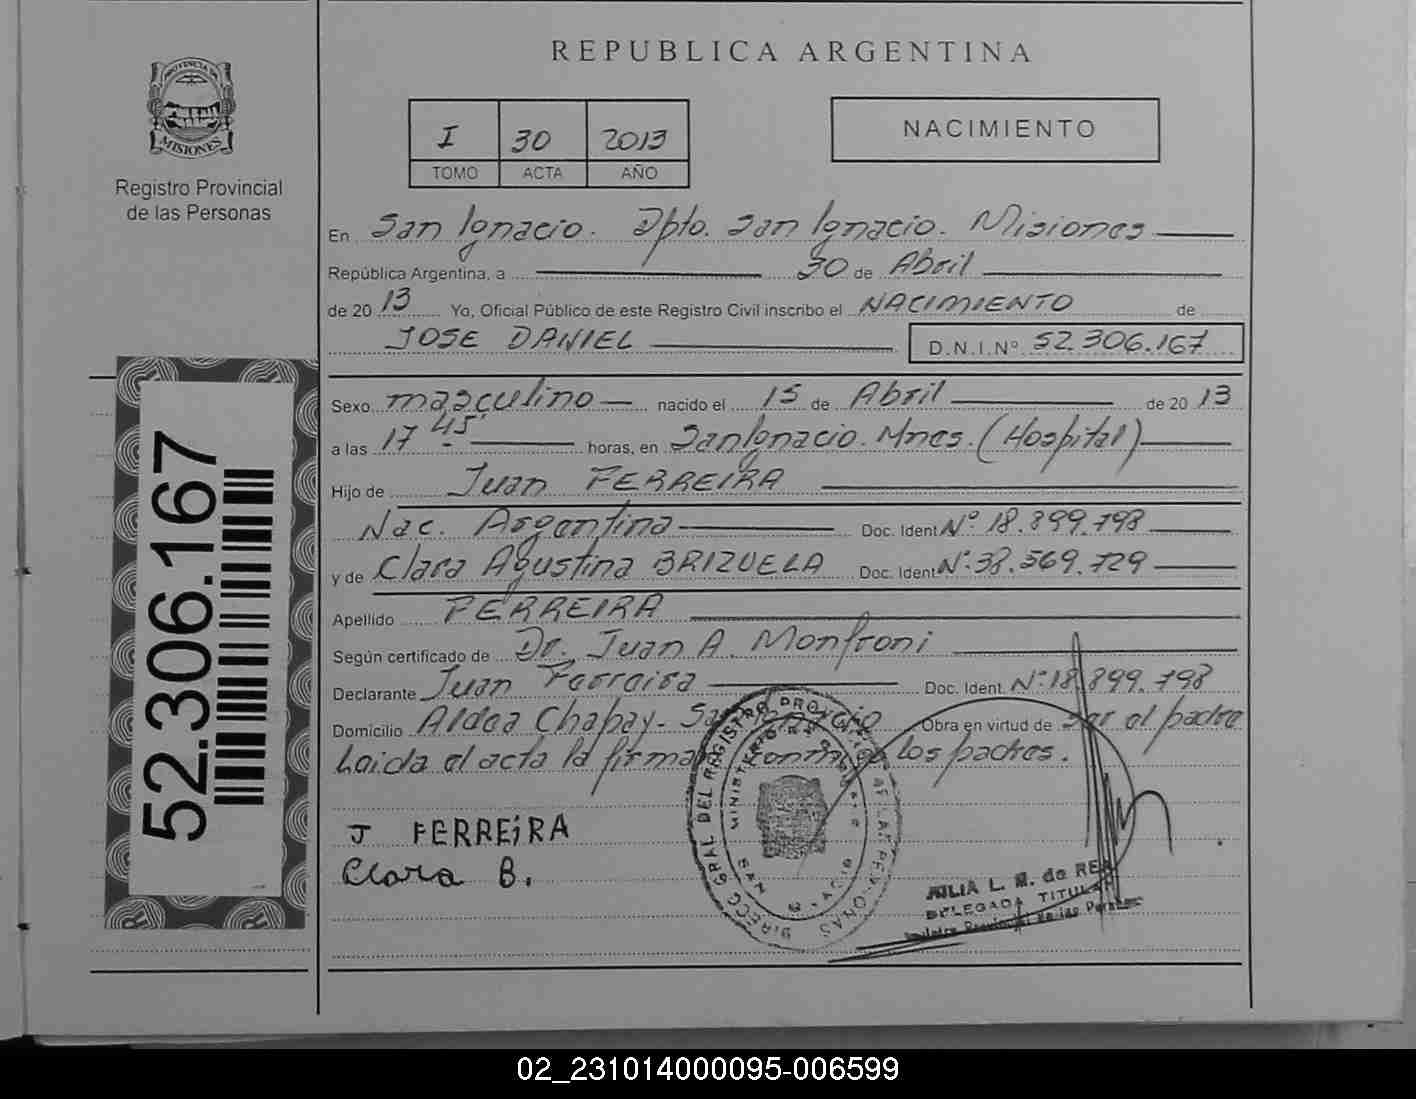 REPUBLICA ARGENTINA
PROVINCIA DE
MISIONES
Registro Provincial
de las Personas
I 30 2013
TOMO ACTA AÑO
NACIMIENTO
En San Ignacio. Dpto. San Ignacio. Misiones
República Argentina, a 30 de Abril
de 20 13 Yo, Oficial Público de este Registro Civil inscribo el NACIMIENTO de
JOSE DANIEL D.N.I.Nº 52.306.167
Sexo masculino nacido el 15 de Abril de 20 13
a las 17 45 horas, en San Ignacio. Mnes. (Hospital)
Hijo de Juan FERREIRA
Nac. Argentina Doc. Ident Nº 18.899.798
y de Clara Agustina BRIZUELA Doc. Ident Nº 38.569.729
Apellido FERREIRA
Según certificado de Dr. Juan A. Monfroni
Declarante Juan Ferreira Doc. Ident. Nº 18.899.798
Domicilio Aldea Chapay - San Ignacio Obra en virtud de ser el padre
Leida el acta la firman conmigo los padres.
J FERREiRA
Clara B.
52.306.167
DIRECC GRAL DEL REGISTRO PROVINCIAL DE LAS PERSONAS
SAN IGNACIO
JULIA L. M. de REA
DELEGADA TITULAR
Registro Provincial de las Personas
02_231014000095-006599